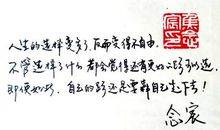 人生的选择变多了，反而变得不自由。
不管选择了什么都会觉得还有更好的路可以选。
即便如此，自己的路还是要靠自己走下去！
念宸